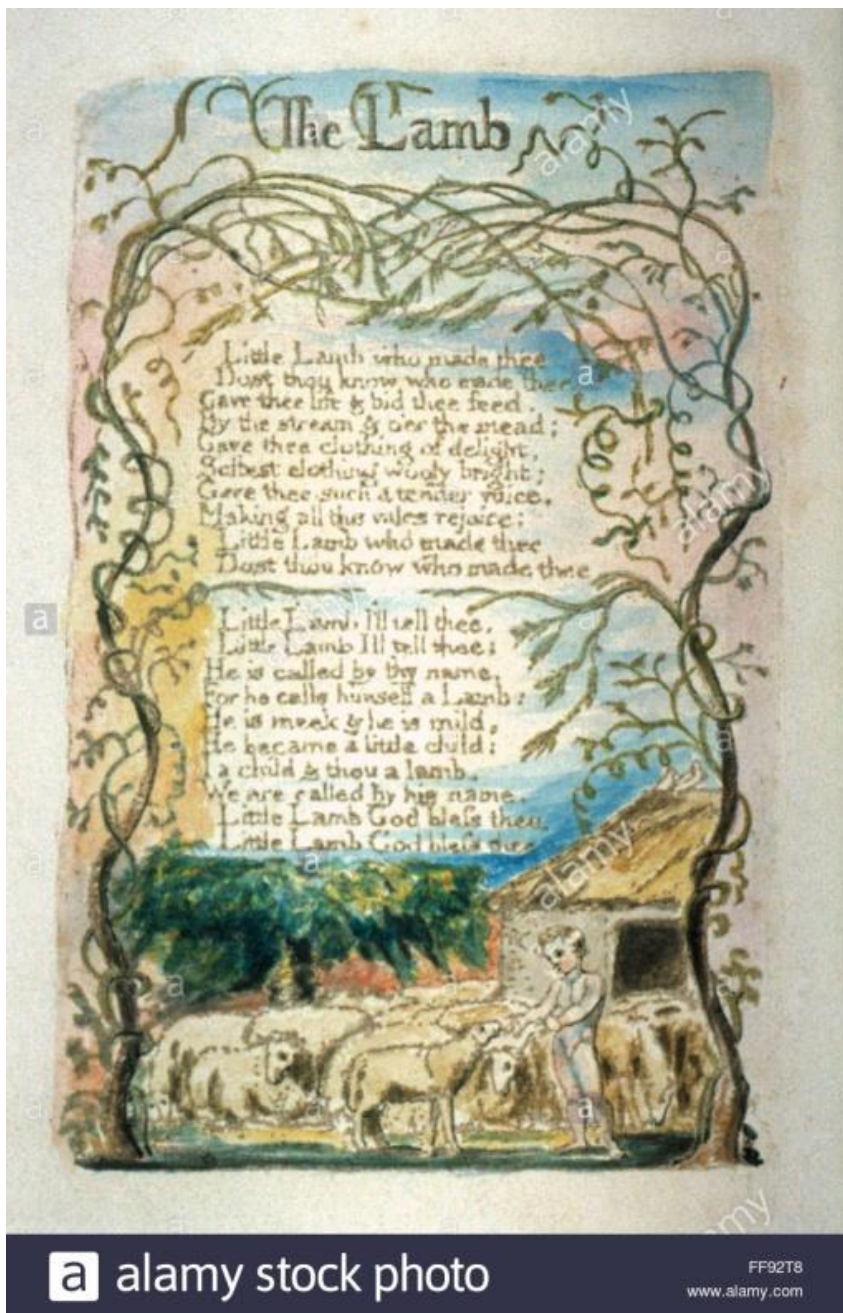 The Lamb
Little Lamb who made thee
Dost thou know who made thee
Gave thee life & bid thee feed.
By the stream & oer the mead;
Gave thee clothing of delight,
Softest clothing wooly bright;
Gave thee such a tender voice,
Making all the vales rejoice:
Little Lamb who made thee
Dost thou know who made thee
Little Lamb I'll tell thee,
Little Lamb I'll tell thee;
He is called by thy name,
For he calls himself a Lamb:
He is meek & he is mild,
He became a little child:
I a child & thou a lamb,
We are called by his name.
Little Lamb God bless thee,
Little Lamb God bless thee
alamy
alamy
alamy
alamy
a alamy stock photo
FF92T8
www.alamy.com